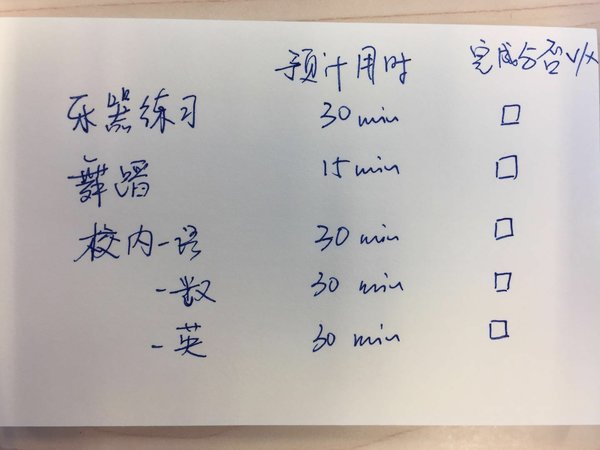 预计用时 完成与否 √/×
乐器练习 30 min □
舞蹈 15 min □
校内-语 30 min □
-数 30 min □
-英 30 min □